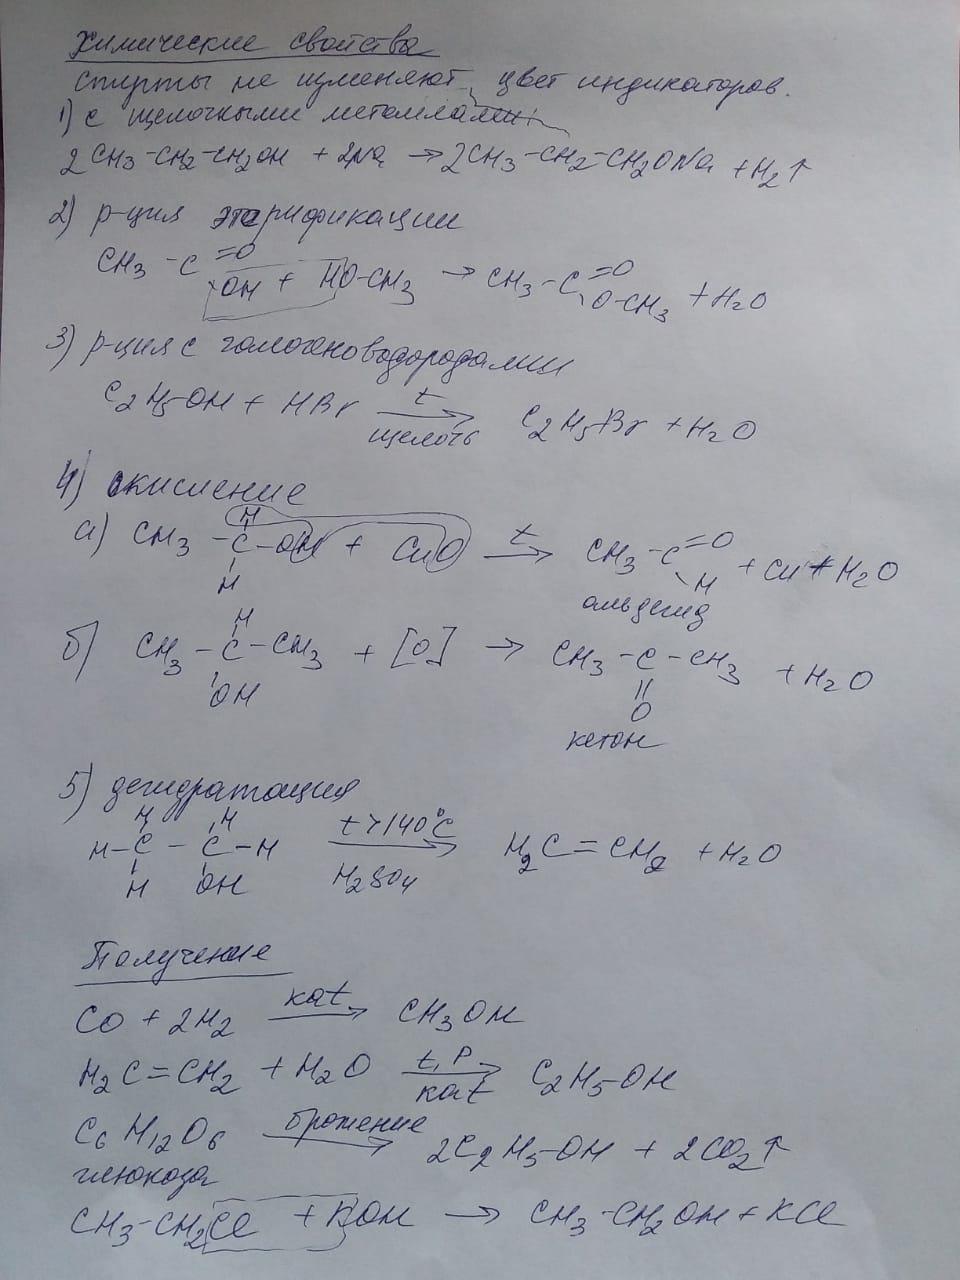 Химические свойства
Спирты не изменяют цвет индикаторов.
1) с щелочными металлами
2CH3-CH2-CH2OH + 2Na → 2CH3-CH2-CH2ONa + H2↑
2) р-ция этерификации
CH3-C=O OH + HO-CH3 → CH3-C=O O-CH3 + H2O
3) р-ция с галогеноводородами
C2H5-OH + HBr t → щелочь C2H5Br + H2O
4) окисление
H
а) CH3-C-OH + CuO t → CH3-C=O + Cu + H2O
H H
альдегид
H
б) CH3-C-CH3 + [O] → CH3-C-CH3 + H2O
OH O
кетон
5) дегидратация
H H
H-C-C-H t>140°C → H2SO4 H2C=CH2 + H2O
H OH
Получение
CO + 2H2 kat → CH3OH
H2C=CH2 + H2O t, P → kat C2H5-OH
C6H12O6 брожение → 2C2H5-OH + 2CO2↑
глюкоза
CH3-CH2Cl + KOH → CH3-CH2OH + KCl